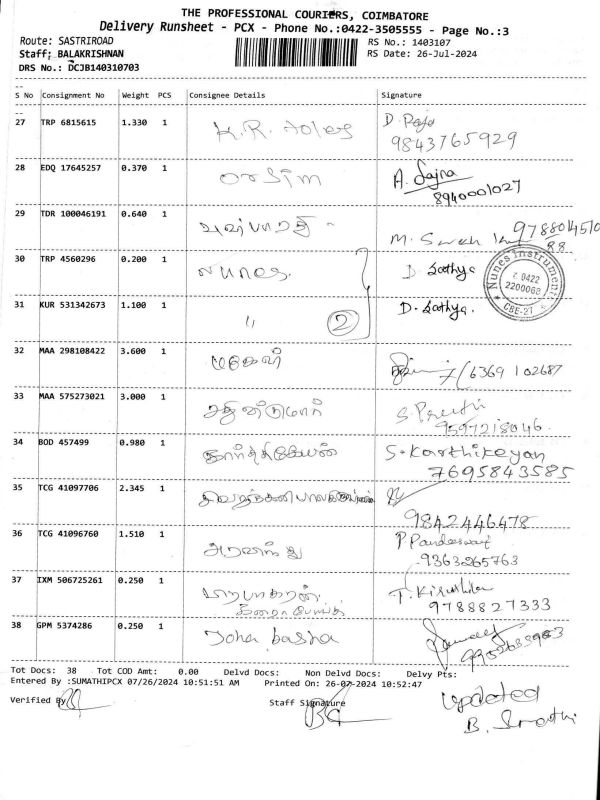 THE PROFESSIONAL COURIERS, COIMBATORE
Delivery Runsheet - PCX - Phone No.:0422-3505555 - Page No.:3
Route: SASTRIROAD RS No.: 1403107
Staff; BALAKRISHNAN RS Date: 26-Jul-2024
DRS No.: DCJB140310703
S No Consignment No Weight PCS Consignee Details Signature
27 TRP 6815615 1.330 1 K.R. D. Raja
9843765929
28 EDQ 17645257 0.370 1 orsim A. Sajna
8940001027
29 TDR 100046191 0.640 1 9788014510
M. 88
30 TRP 4560296 0.200 1 Nunes. D. Sathya
Nunes Instrument
0422
2200068
CBE-27
31 KUR 531342673 1.100 1 " 2 D. Sathya.
32 MAA 298108422 3.600 1 மகேஷ் 6369102687
33 MAA 575273021 3.000 1 S. Preethi
9597218046.
34 BOD 457499 0.980 1 கார்த்திகேயன் S. Karthikeyan
7695843585
35 TCG 41097706 2.345 1
9842446478
36 TCG 41096760 1.510 1 அரவிந்து P. Pandeeswari
9363265763
37 IXM 506725261 0.250 1 பிரபாகரன். T.
9788827333
38 GPM 5374286 0.250 1 Joha basha
Tot Docs: 38 Tot COD Amt: 0.00 Delvd Docs: Non Delvd Docs: Delvy Pts:
Entered By :SUMATHIPCX 07/26/2024 10:51:51 AM Printed On: 26-07-2024 10:52:47
Verified By Staff Signature Updated
B.